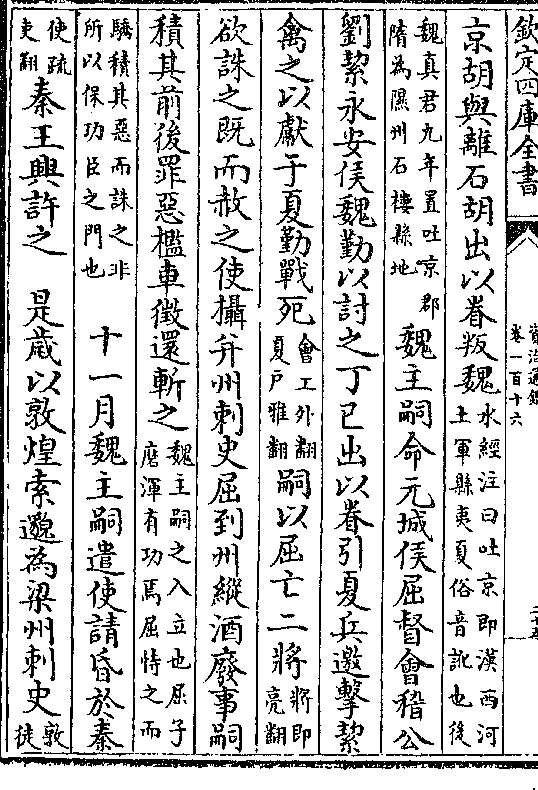 欽定四庫全書
資治通鑑
卷一百十六
京胡與離石胡出以眷叛魏水經注曰吐京即漢西河土軍縣夷夏俗音訛也後
魏真君九年置吐京郡隋為隰州石樓縣地魏主嗣命元城侯屈督會稽公
劉絜永安侯魏勤以討之丁巳出以眷引夏兵邀擊絜
禽之以獻于夏勤戰死會工外翻夏戶雅翻嗣以屈亡二將將即亮翻
欲誅之既而赦之使攝并州刺史屈到州縱酒廢事嗣
積其前後罪惡檻車徵還斬之魏主嗣之入立也屈子磨渾有功焉屈恃之而
驕積其惡而誅之非所以保功臣之門也十一月魏主嗣遣使請昏於秦
使疏吏翻秦王興許之 是歲以敦煌索邈為梁州刺史敦徒